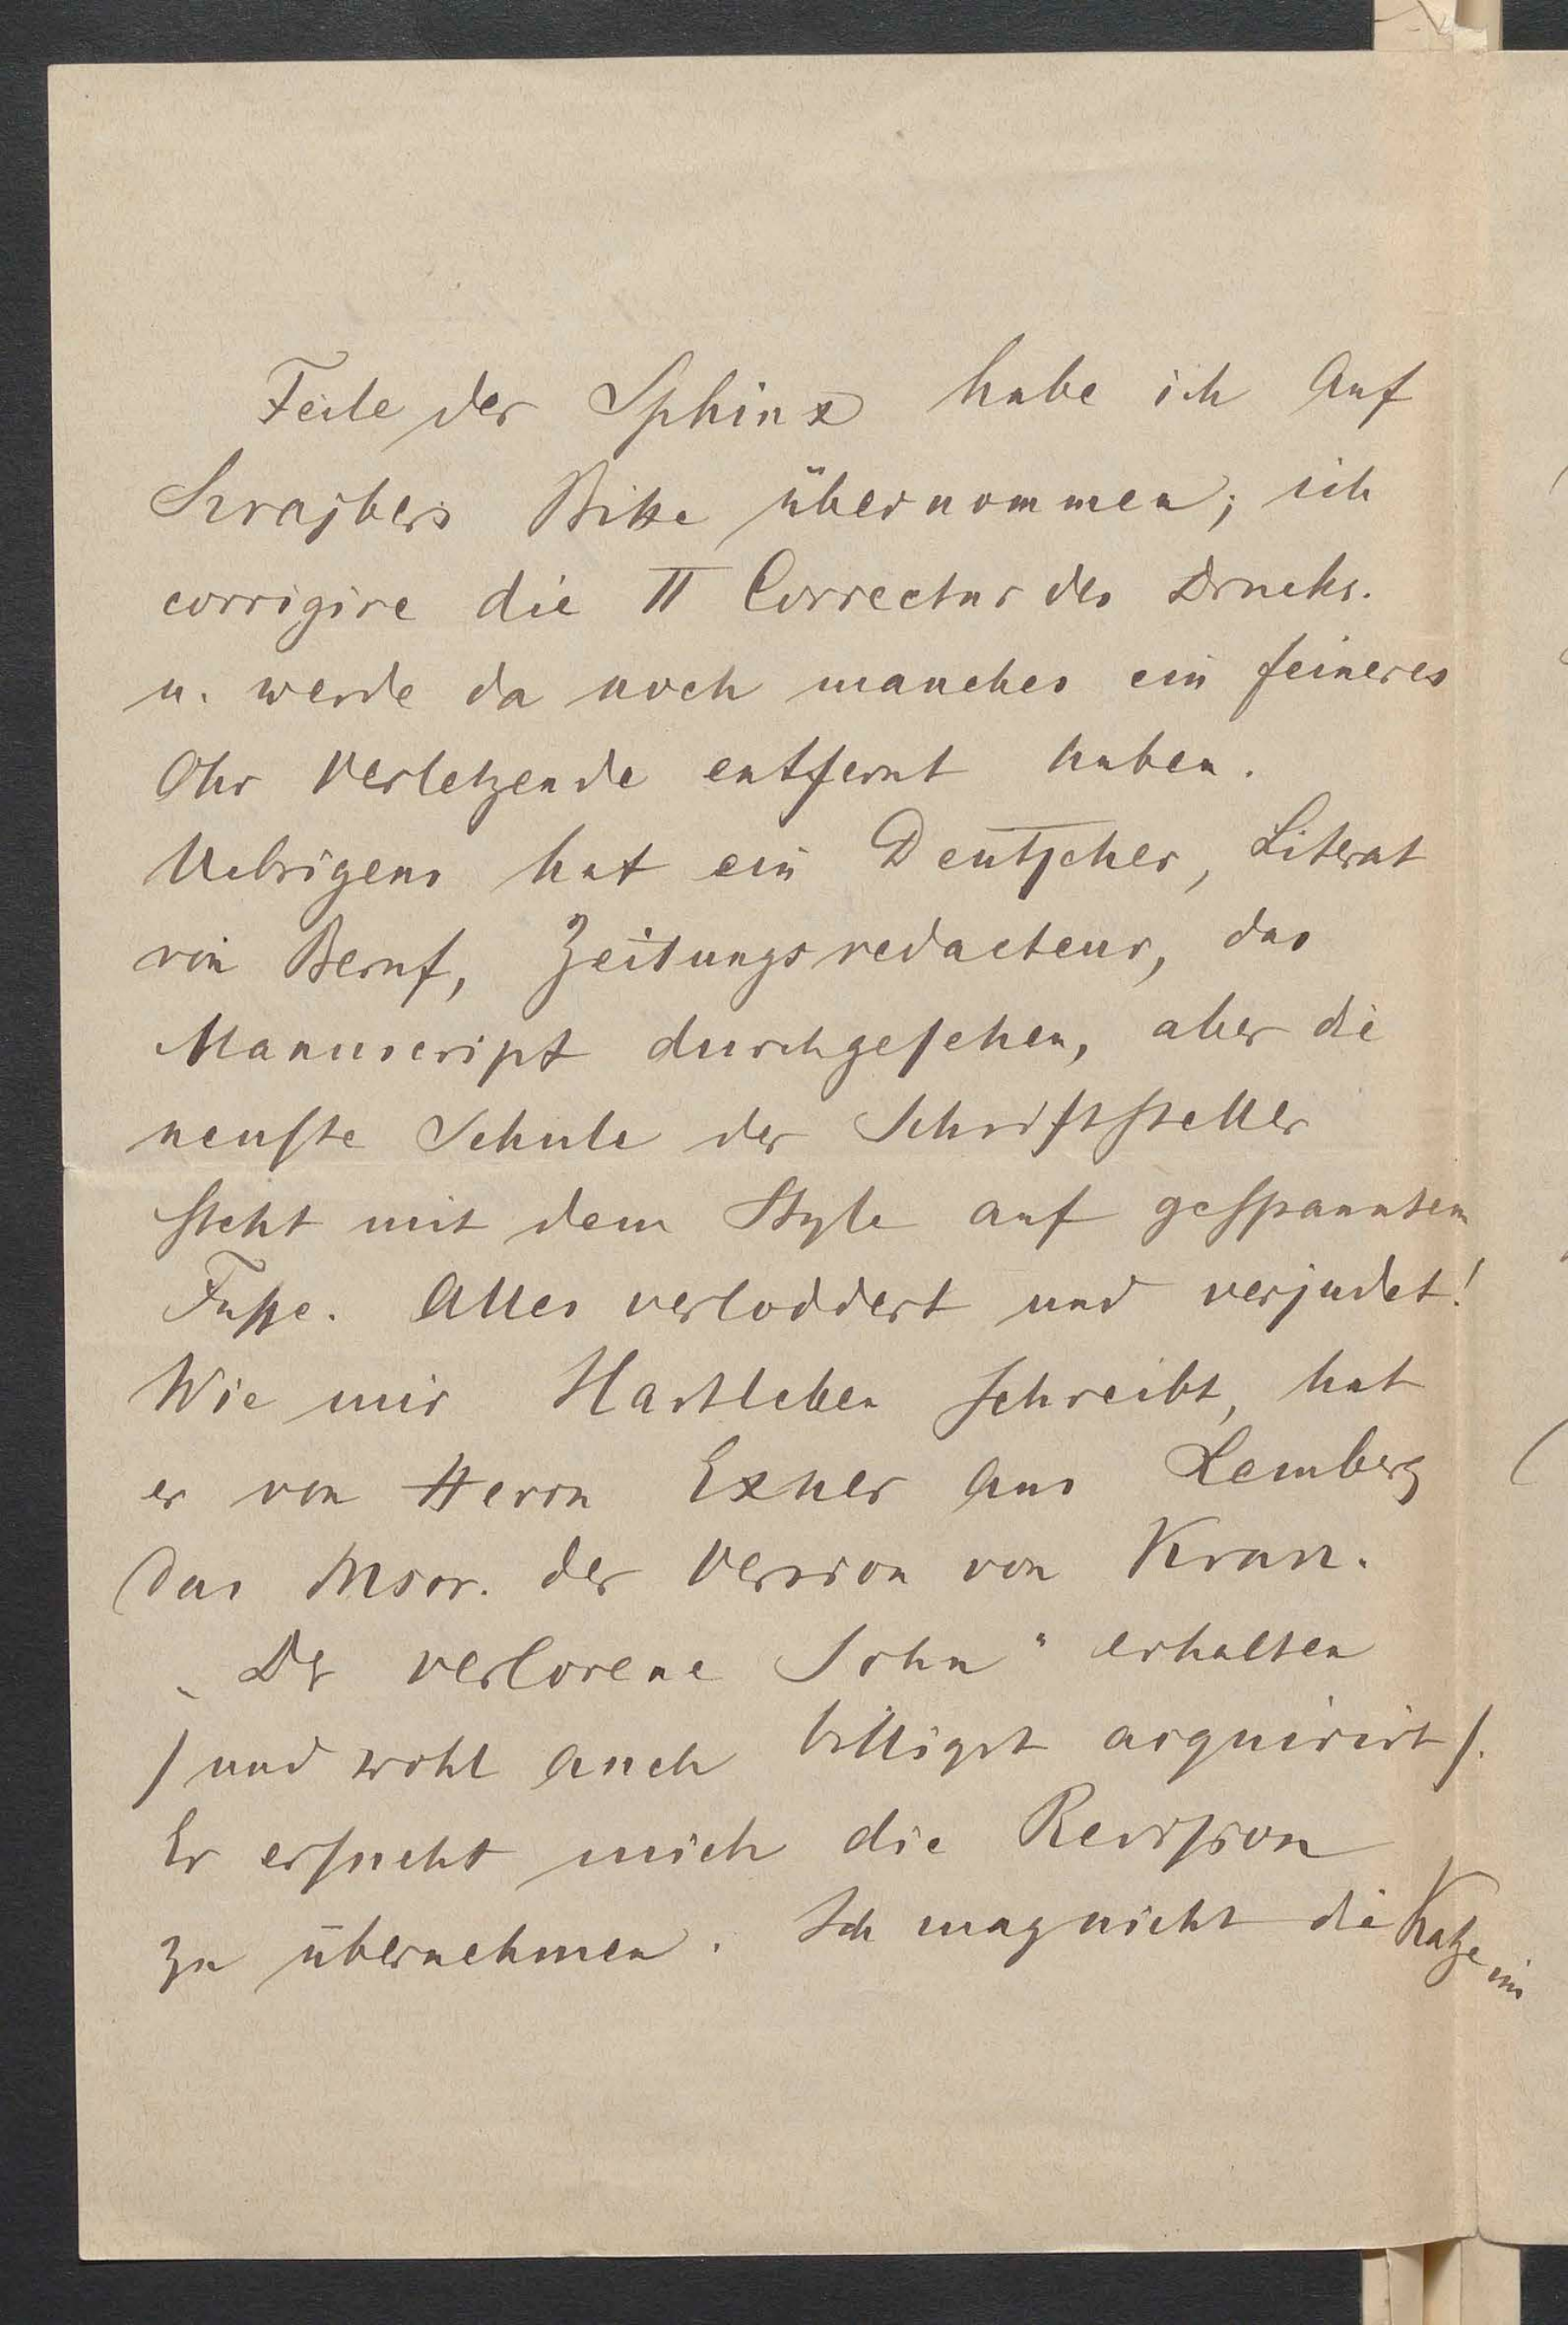 Feile der Sphinx habe ich auf
Szrajbers Bitte übernommen; ich
corrigire die II Correctur des Drucks.
u. werde da noch manches ein feineres
Ohr Verletzende entfernt haben.
Uebrigens hat ein Deutscher, Literat
von Beruf, Zeitungsredacteur, das
Manuscript durchgesehen, aber die
neuste Schule der Schriftsteller
steht mit dem Style auf gespanntem
Fusse. Alles verloddert und verjudet!
Wie mir Hartleben schreibt, hat
er von Herrn Exner aus Lemberg
das Mscr. der Version von Krasz.
„Der verlorene Sohn" erhalten
/und wohl auch billigst acquirirt/.
Er ersucht mich die Revision
zu übernehmen. Ich mag nicht die Katze im